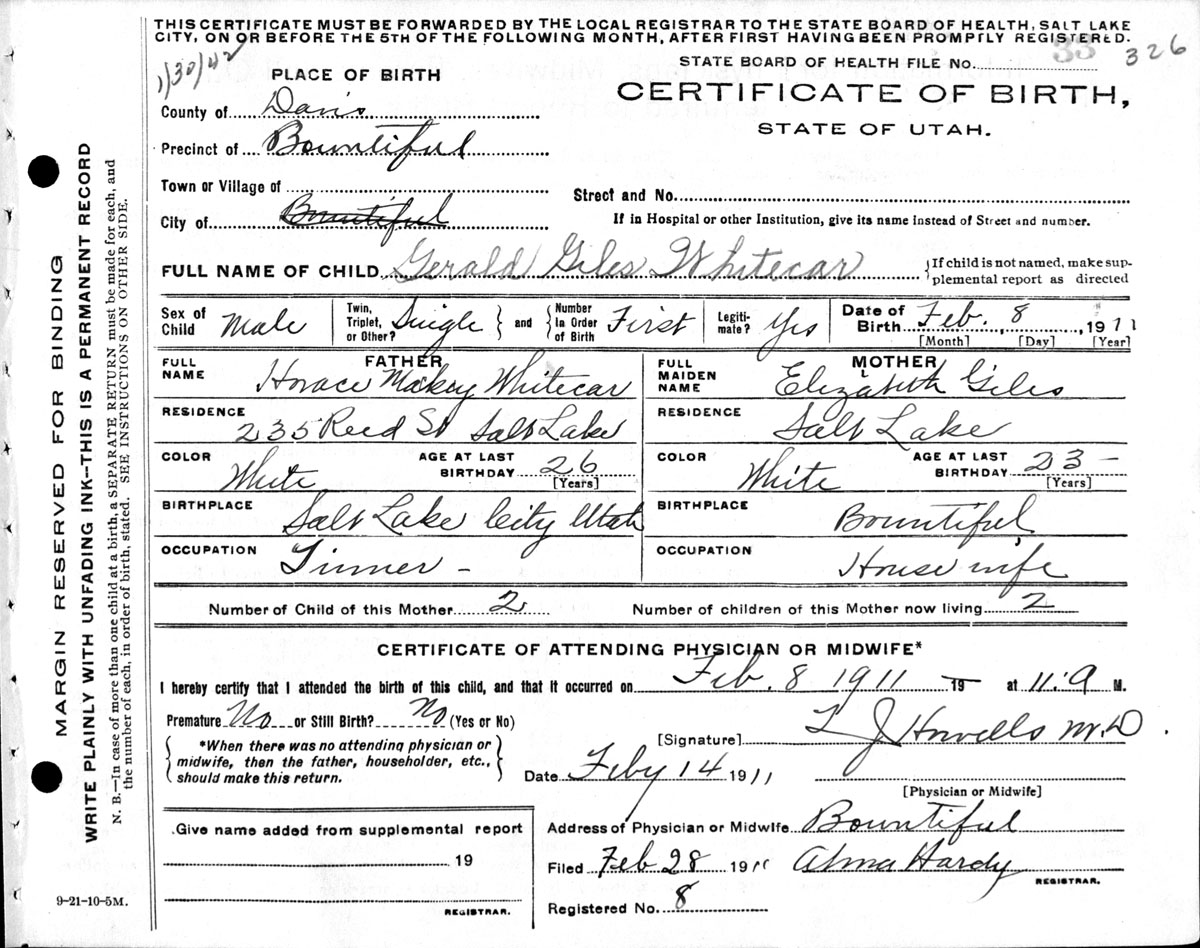 THIS CERTIFICATE MUST BE FORWARDED BY THE LOCAL REGISTRAR TO THE STATE BOARD OF HEALTH, SALT LAKE
CITY, ON OR BEFORE THE 5TH OF THE FOLLOWING MONTH, AFTER FIRST HAVING BEEN PROMPTLY REGISTERED.
1/30/42
STATE BOARD OF HEALTH FILE No. 33 326
PLACE OF BIRTH
CERTIFICATE OF BIRTH,
STATE OF UTAH.
County of Davis
Precinct of Bountiful
Town or Village of
Street and No.
City of Bountiful
If in Hospital or other Institution, give its name instead of Street and number.
FULL NAME OF CHILD Gerald Giles Whitecar {If child is not named, make sup-
plemental report as directed
Sex of Child Male
Twin, Triplet, or Other? Single } and { Number In Order of Birth First
Legiti-mate? Yes
Date of Birth Feb. 8, 1911
[Month] [Day] [Year]
FATHER
FULL NAME Horace Whitecar
RESIDENCE 235 Reed St Salt Lake
COLOR White AGE AT LAST BIRTHDAY 26 [Years]
BIRTHPLACE Salt Lake City Utah
OCCUPATION Tinner -
MOTHER
FULL MAIDEN NAME Elizabeth Giles
RESIDENCE Salt Lake
COLOR White AGE AT LAST BIRTHDAY 23 - [Years]
BIRTHPLACE Bountiful
OCCUPATION House wife
Number of Child of this Mother 2 Number of children of this Mother now living 2
CERTIFICATE OF ATTENDING PHYSICIAN OR MIDWIFE*
I hereby certify that I attended the birth of this child, and that it occurred on Feb. 8 1911 19 at 11. a M.
Premature No or Still Birth? No (Yes or No)
{*When there was no attending physician or
midwife, then the father, householder, etc.,
should make this return.}
[Signature] L J Howells M.D.
Date Feby 14 1911
[Physician or Midwife]
Give name added from supplemental report
19
REGISTRAR.
Address of Physician or Midwife Bountiful
Filed Feb 28 1911 Alma Hardy
REGISTRAR.
Registered No. 8
9-21-10-5M.
MARGIN RESERVED FOR BINDING
WRITE PLAINLY WITH UNFADING INK--THIS IS A PERMANENT RECORD
N. B.—In case of more than one child at a birth, a SEPARATE RETURN must be made for each, and
the number of each, in order of birth, stated. SEE INSTRUCTIONS ON OTHER SIDE.